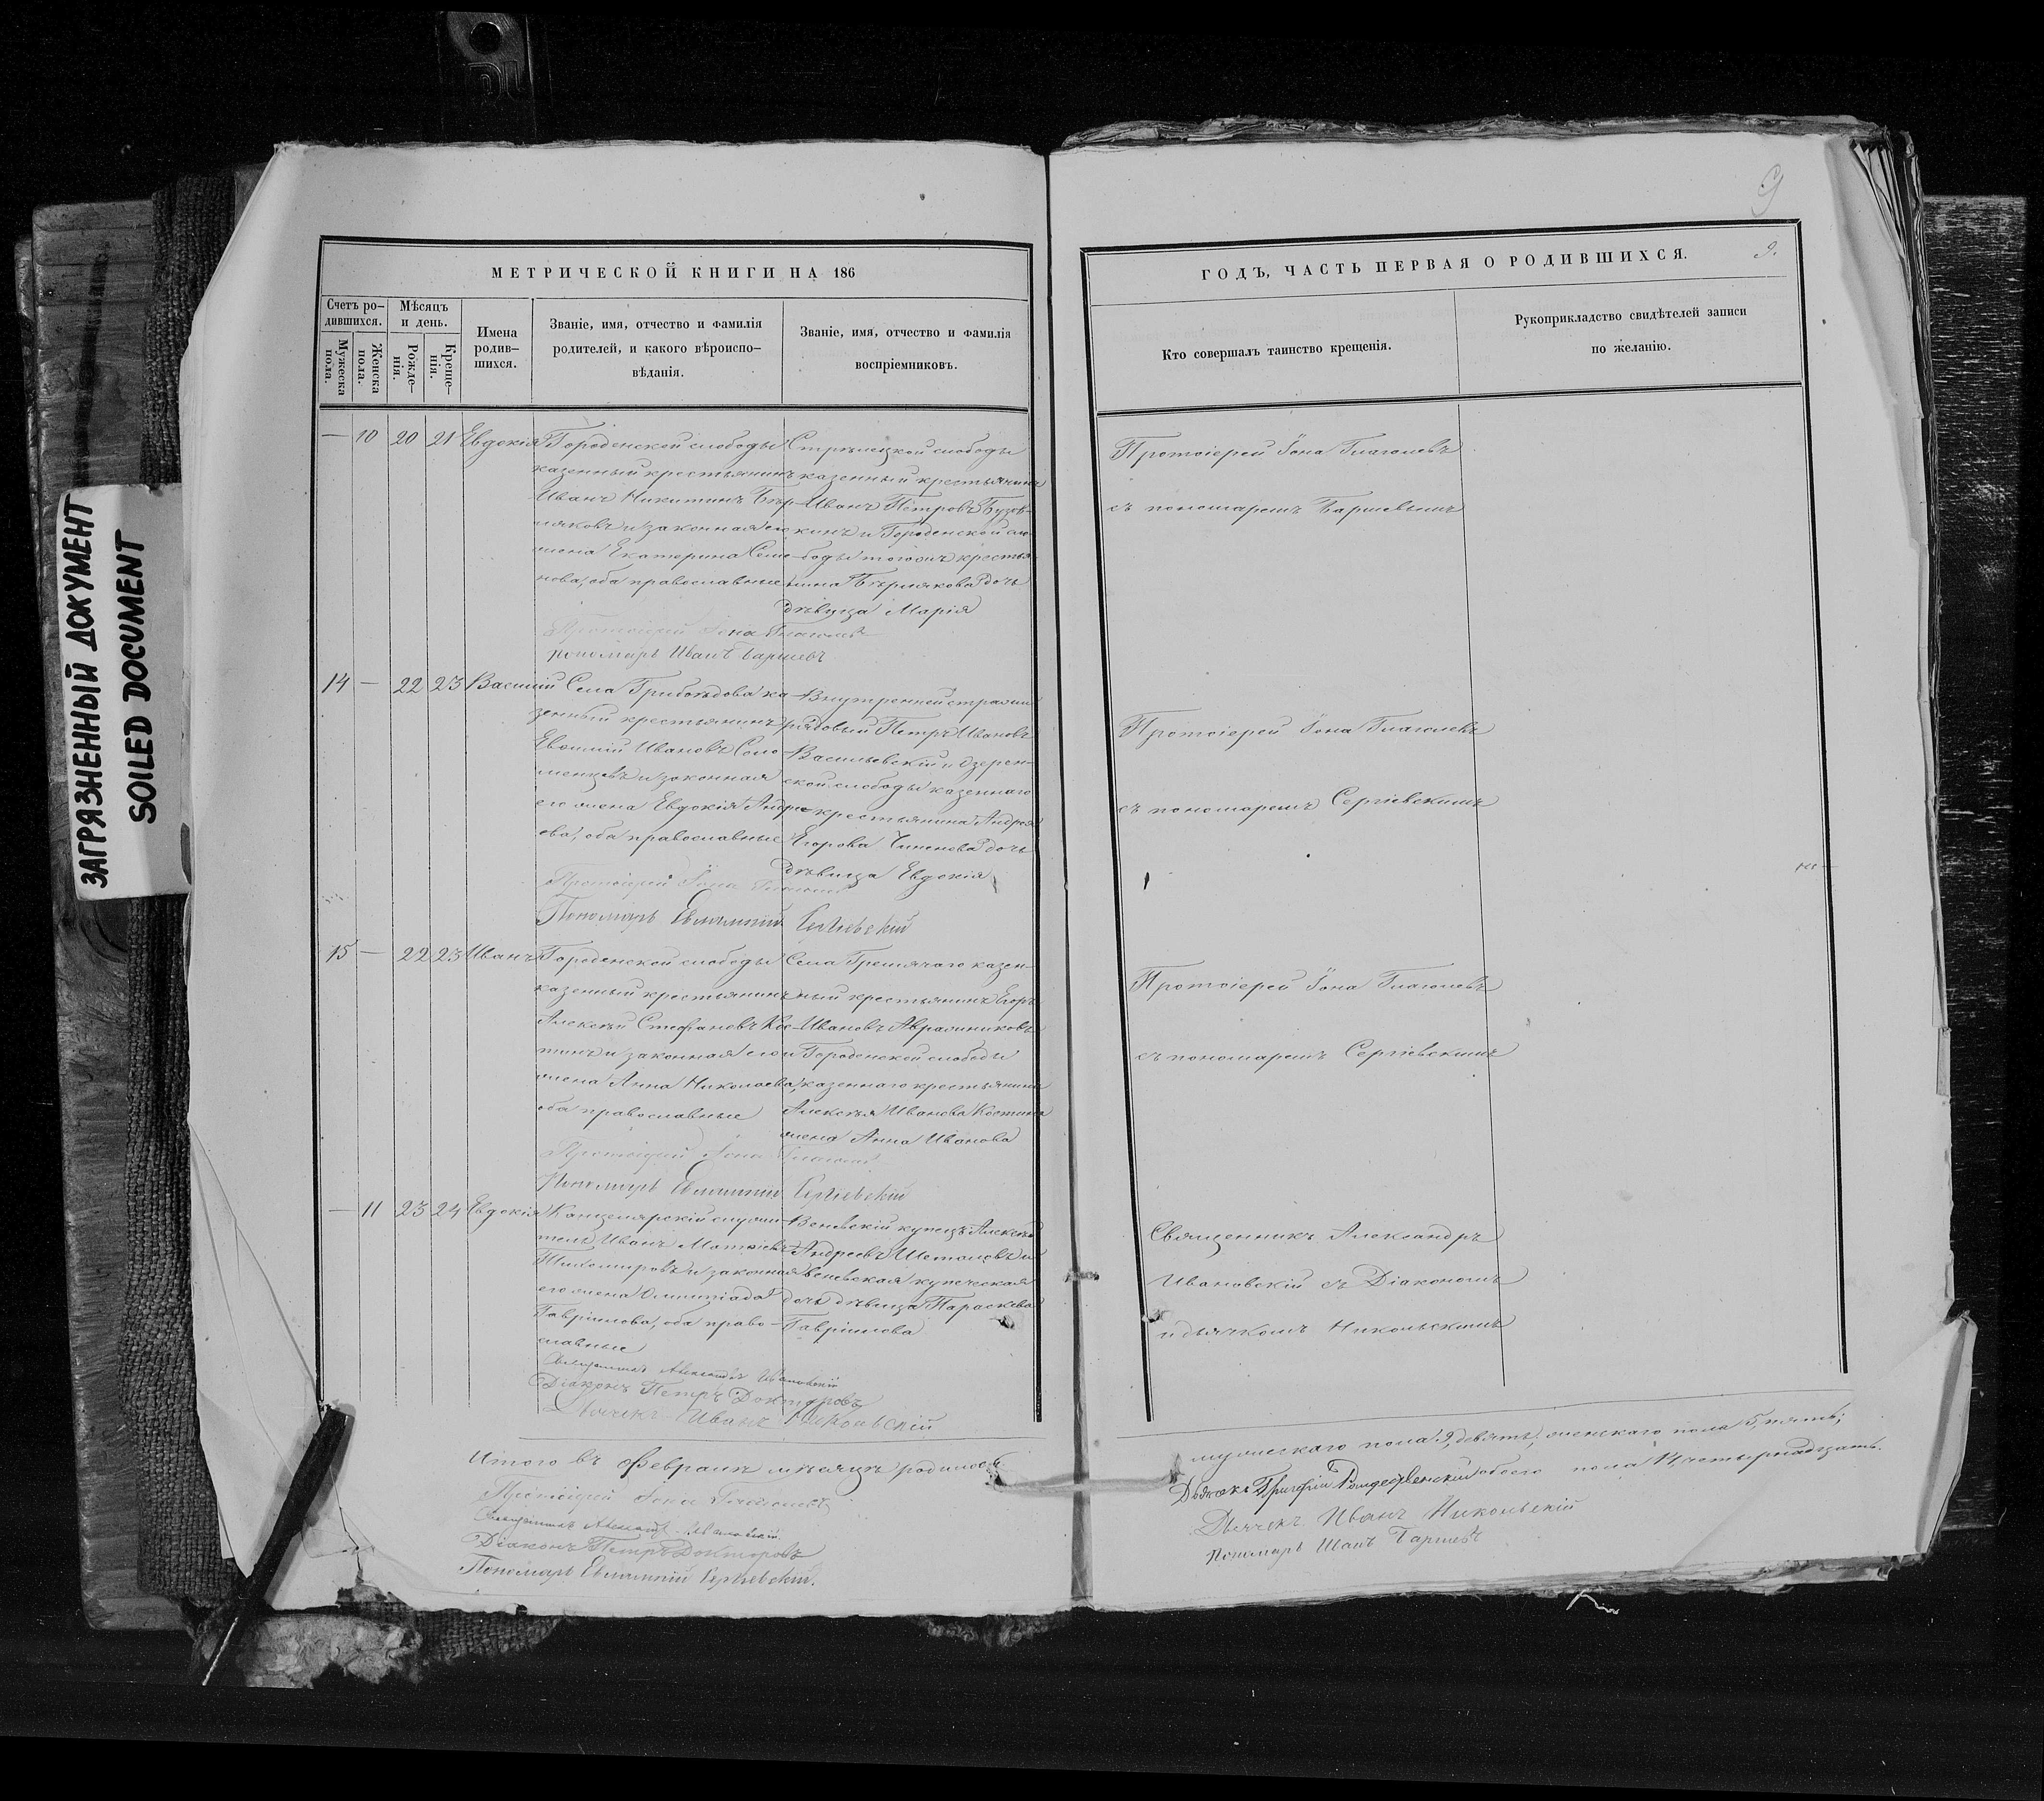 ЗАГРЯЗНЕННЫЙ ДОКУМЕНТ
SOILED DOCUMENT
9
МЕТРИЧЕСКОЙ КНИГИ НА 186
Счетъ ро-
дившихся.
Мужеска
пола.
Женска
пола.
Мѣсяцъ
и день.
Рожде-
нія.
Креще-
нія.
Имена
родив-
шихся.
Званіе, имя, отчество и фамилія
родителей, и какого вѣроиспо-
вѣданія.
Званіе, имя, отчество и фамилія
воспріемниковъ.
ГОДЪ, ЧАСТЬ ПЕРВАЯ О РОДИВШИХСЯ.
9.
Кто совершалъ таинство крещенія.
Рукоприкладство свидѣтелей записи
по желанію.
— 10 20 21 Евдокія
Городенской слободы
казенный крестьянинъ
Иванъ Никитинъ
и законная его
жена Екатерина Семе-
нова, оба православные
Стрѣлецкой слободы
казенный крестьянинъ
Иванъ Петровъ Бузов-
кинъ и Городенской сло-
боды тогожъ крестья-
нина дочь
дѣвица Марія
Протоіерей Іона Глаголевъ
пономарь Иванъ Баршевъ
Протоіерей Іона Глаголевъ
съ пономаремъ Баршевымъ
14 — 22 23 Василій
Села Грибоѣдова ка-
зенный крестьянинъ
Евѳимій Ивановъ Соло-
менцевъ и законная
его жена Евдокія Андре-
ева, оба православные
Внутренней стражи
рядовый Петръ Ивановъ
Васильевскій и Озерен-
ской слободы казеннаго
крестьянина Андрея
Егорова дочь
дѣвица Евдокія
Протоіерей Іона Глаголевъ
Пономарь Евлампій Сергіевскій
Протоіерей Іона Глаголевъ
съ пономаремъ Сергіевскимъ
15 — 22 23 Иванъ
Городенской слободы
казенный крестьянинъ
Алексѣй Стефановъ Кос-
тинъ и законная его
жена Анна Николаева,
оба православные
Села Гремячаго казен-
ный крестьянинъ Егоръ
Ивановъ
и Городенской слободы
казеннаго крестьянина
Алексѣя Иванова Костина
жена Анна Иванова
Протоіерей Іона Глаголевъ
Пономарь Евлампій Сергіевскій
Протоіерей Іона Глаголевъ
съ пономаремъ Сергіевскимъ
— 11 23 24 Евдокія
Канцелярскій служи-
тель Иванъ Матвіевъ
Тихомировъ и законная
его жена Олимпіада
Гавріилова, оба право-
славные
Веневскій купецъ Алексѣй
Андреевъ и
веневская купеческая
дочь дѣвица Параскева
Гавріилова
Священникъ Александръ Ивановскій
Діаконъ Петръ Докторовъ
Дьячекъ Иванъ Никольскій
Священникъ Александръ
Ивановскій съ Діакономъ
и дьячкомъ Никольскимъ
Итого въ Февралѣ мѣсяцѣ родилось
мужескаго пола 9, девять, женскаго пола 5, пять;
обоего пола 14, четырнадцать.
Протоіерей Іона Глаголевъ
Священникъ Александръ Ивановскій
Діаконъ Петръ Докторовъ
Пономарь Евлампій Сергіевскій.
Григорій Рождественскій
Дьячекъ Иванъ Никольскій
пономарь Иванъ Баршевъ